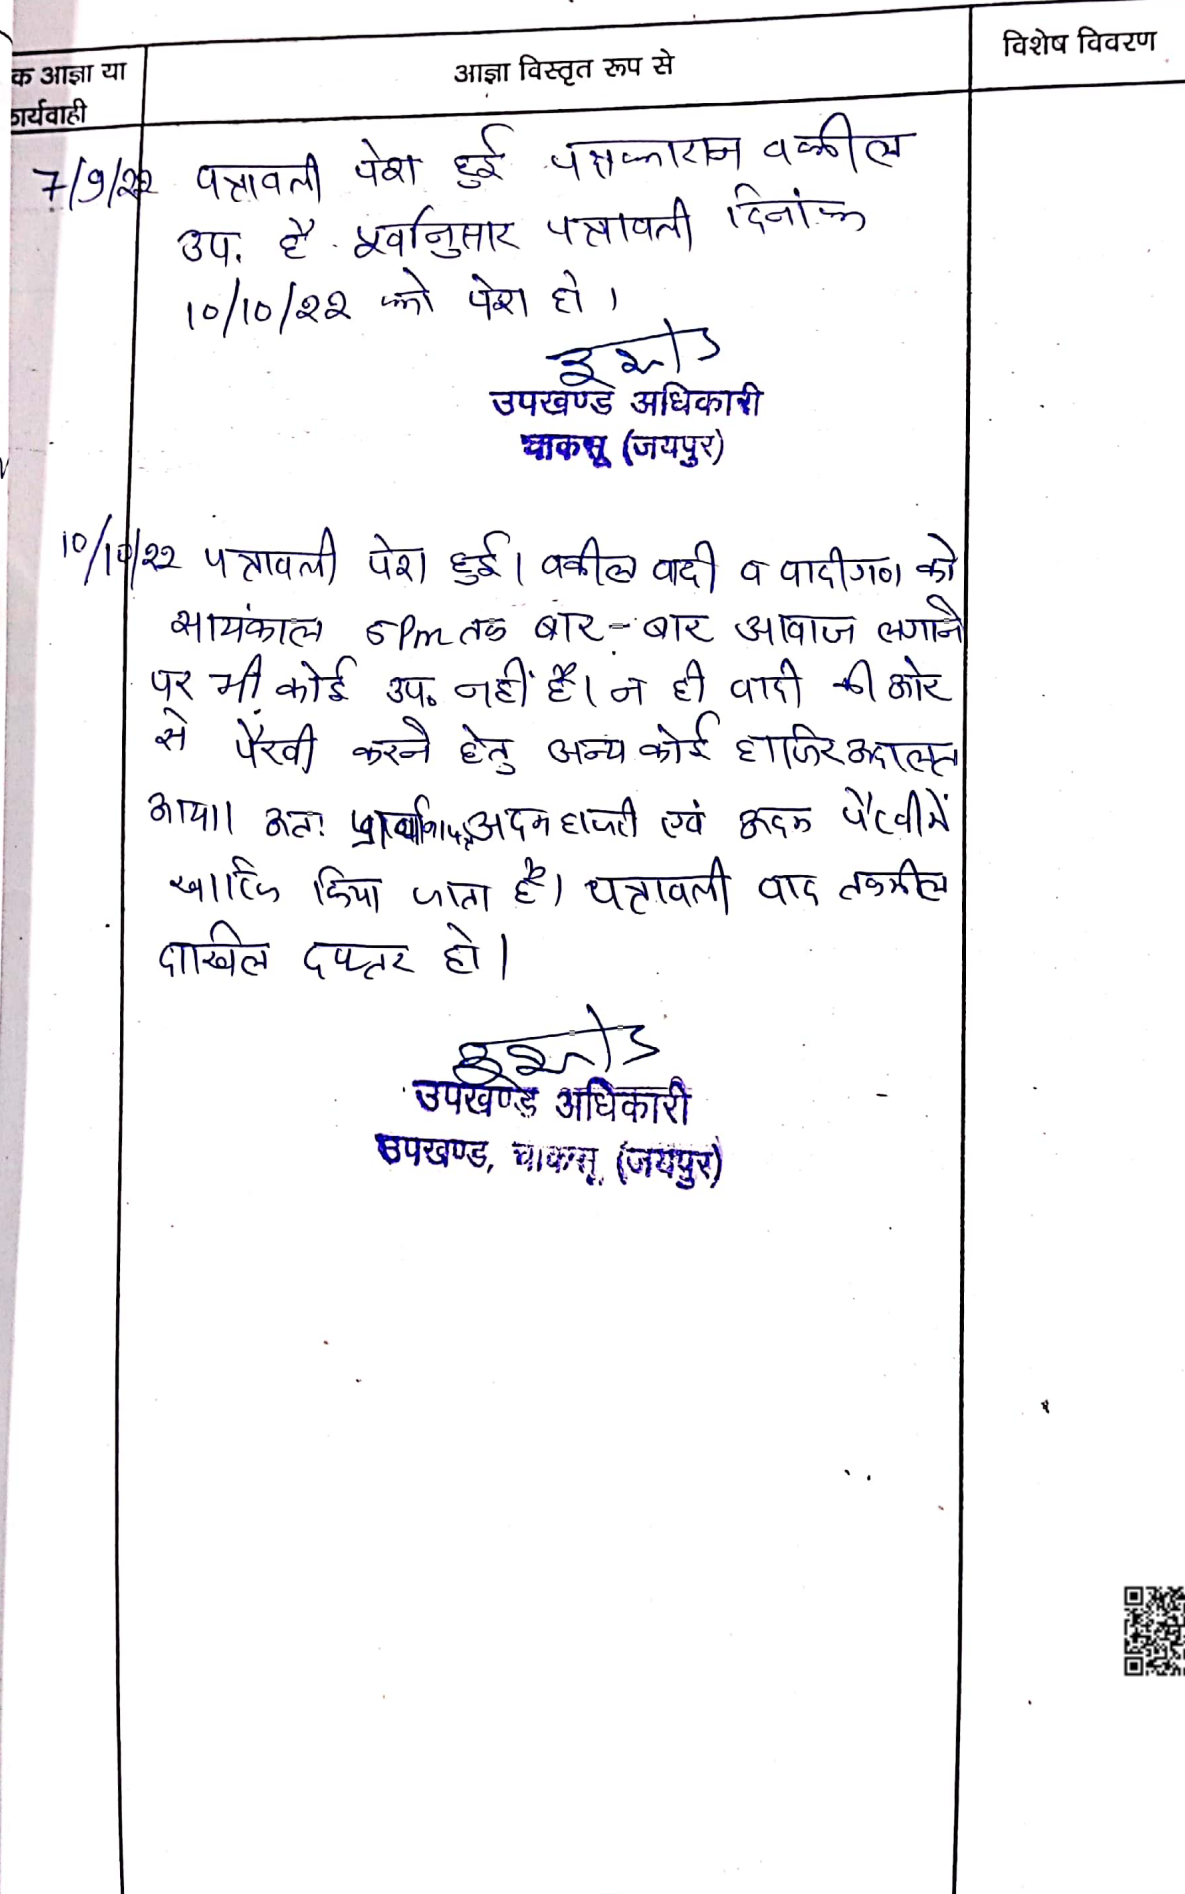 क आज्ञा या
कार्यवाही
आज्ञा विस्तृत रूप से
विशेष विवरण
7/9/22 पत्रावली पेश हुई पक्षकारान वकील
उप. है पूर्वानुसार पत्रावली दिनांक
10/10/22 को पेश हो ।
उपखण्ड अधिकारी
चाकसू (जयपुर)
10/10/22 पत्रावली पेश हुई। वकील वादी व वादीगण को
सायंकाल 5 Pm तक बार-बार आवाज लगाने
पर भी कोई उप० नहीं है। न ही वादी की ओर
से पैरवी करने हेतु अन्य कोई हाजिर अदालत
आया। अतः अदम हाजरी एवं अदम पैरवी में
खारिज किया जाता है। पत्रावली बाद तकमील
दाखिल दफ्तर हो।
उपखण्ड अधिकारी
उपखण्ड, चाकसू (जयपुर)